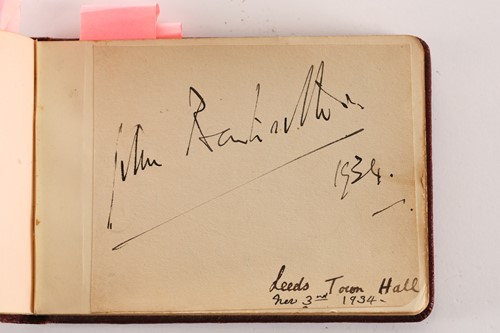 John Barbirolli
1934.
Leeds Town Hall
Nov 3rd 1934 -